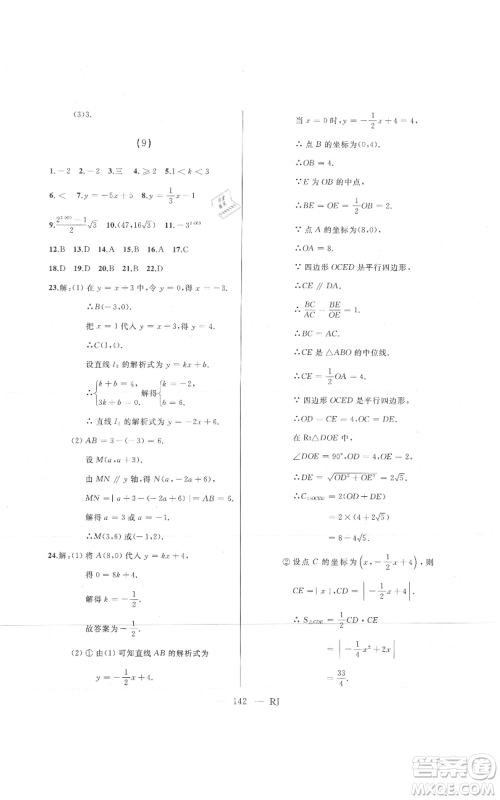 (3)3.
(9)
1.－2 2.－2 3.三 4.⩾2 5.1＜k＜3
6.＜ 7.y＝3x 8.y＝1/3x－1
10.(47,16√3)
12.B 13.D 14.B 15.A 16.A 17.C
18.D 19.D 20.A 21.B 22.D
23.解:(1)在 y＝x＋3 中,令 y＝0,得 x＝－3.
∴B(－3,0).
把 x＝1 代人 y＝x＋3 得 y＝4.
∴C(1,4).
设直线 l₂ 的解析式为 y＝kx＋b.
∴{k＋b＝4, 3k＋b＝0. 解得{k＝－2, b＝6.
∴直线 l₂ 的解析式为 y＝－2x＋6.
(2)AB＝3－(－3)＝6.
设 M(a,a＋3).
由 MN∥y 轴,得 N(a,－2a＋6).
MN＝|a＋3－(－2a＋6)|＝AB＝6.
解得 a＝3 或 a＝－1.
∴M(3,6)或(－1,2).
24.解:(1)将 A(8,0)代人 y＝kx＋4,
得 0＝8k＋4.
解得 k＝－1/2.
故答案为－1/2.
(2)①由(1)可知直线 AB 的解析式为
y＝－1/2x＋4.
当 x＝0 时,y＝－1/2x＋4＝4.
∴点 B 的坐标为(0,4).
∴OB＝4.
∵E 为 OB 的中点,
∴BE＝OE＝1/2OB＝2.
∵点 A 的坐标为(8,0),
∴OA＝8.
∵四边形 OCED 是平行四边形,
∴CE∥DA.
∴BC/AC＝BE/OE＝1.
∴BC＝AC.
∴CE 是△ABO 的中位线.
∴CE＝1/2OA＝4.
∵四边形 OCED 是平行四边形,
∴OD＝CE＝4,OC＝DE.
在 Rt△DOE 中,
∠DOE＝90°,OD＝4,OE＝2,
∴DE＝√OD²＋OE²＝2√5.
＝2×(4＋2√5)
＝8＋4√5.
②设点 C 的坐标为(x,－1/2x＋4),则
CE＝|x|,CD＝|－1/2x＋4|.
∴S△CDE＝1/2CD·CE
＝|－1/4x²＋2x|
＝33/4.
142 — RJ
答案圈
MXQE.COM